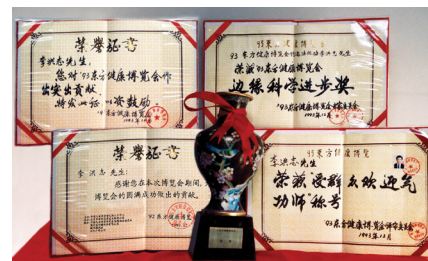 荣誉证书
李洪志先生:
您对'93东方健康博览会作
出突出贡献,
特发此证 以资鼓励
'93东方健康博览会
1993年12月
93东方健康博览
荣获'93东方健康博览会
边缘科学进步奖
'93东方健康博览会评审委员会
1993年12月
荣誉证书
李洪志 先生:
感谢您在本次博览会期间,
博览会的圆满成功做出的贡献。
'93东方健康博览会
93东方健康博览
李洪志先生
荣获受群众欢迎气
功师称号
'93东方健康博览会评审委员会
1993年12月